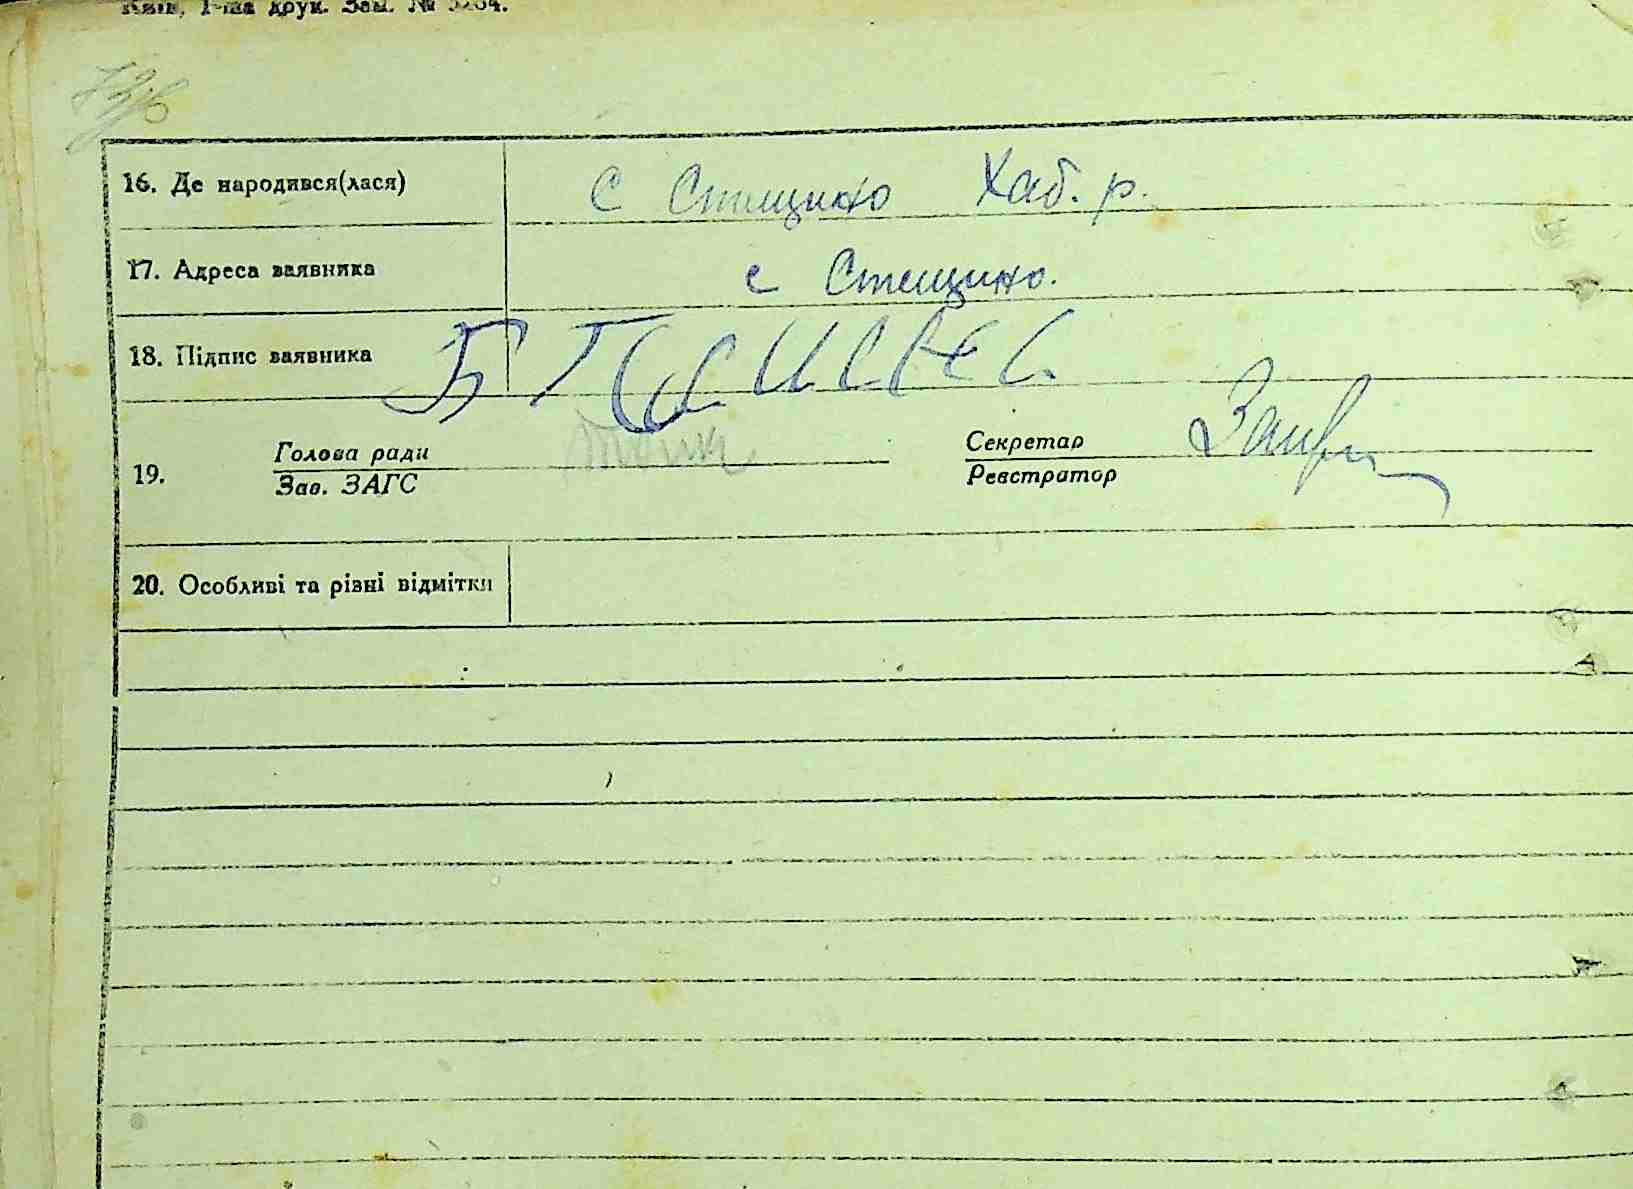 Київ, 1-ша друк. Зам. № 5264.
16. Де народився(лася) с Стещино Хаб. р.
17. Адреса заявника с Стещино.
18. Підпис заявника
Голова ради Секретар
19.
Зав. ЗАГС Реєстратор
20. Особливі та різні відмітки